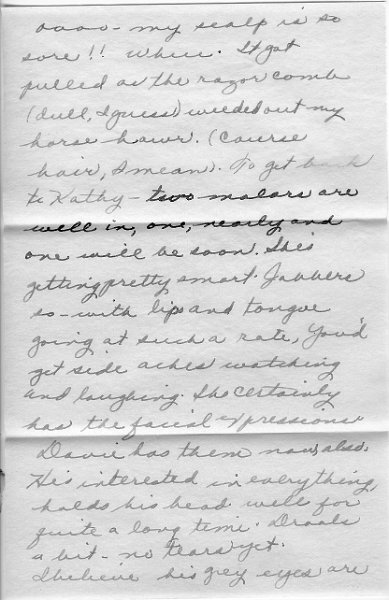 oooo - my scalp is so
sore!! Whee. It got
pulled as the razor comb
(dull, I guess) weeded out my
horse hawr. (Course
hair, I mean). To get back
to Kathy - two molars are
well in, one, nearly and
one will be soon. She's
getting pretty smart. Jabbers
so - with lips and tongue
going at such a rate. You'd
get side aches watching
and laughing. She certainly
has the facial expressions
Davie has them now, also.
He's interested in everything,
holds his head well for
quite a long time. Drools
a bit - no tears yet.
I believe his grey eyes are